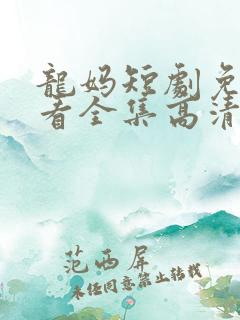 龍妈短劇免
看全集高清
范西屏
未经同意禁止转载